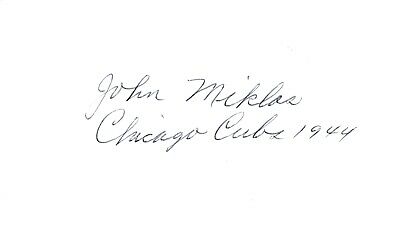 John Miklos
Chicago Cubs 1944